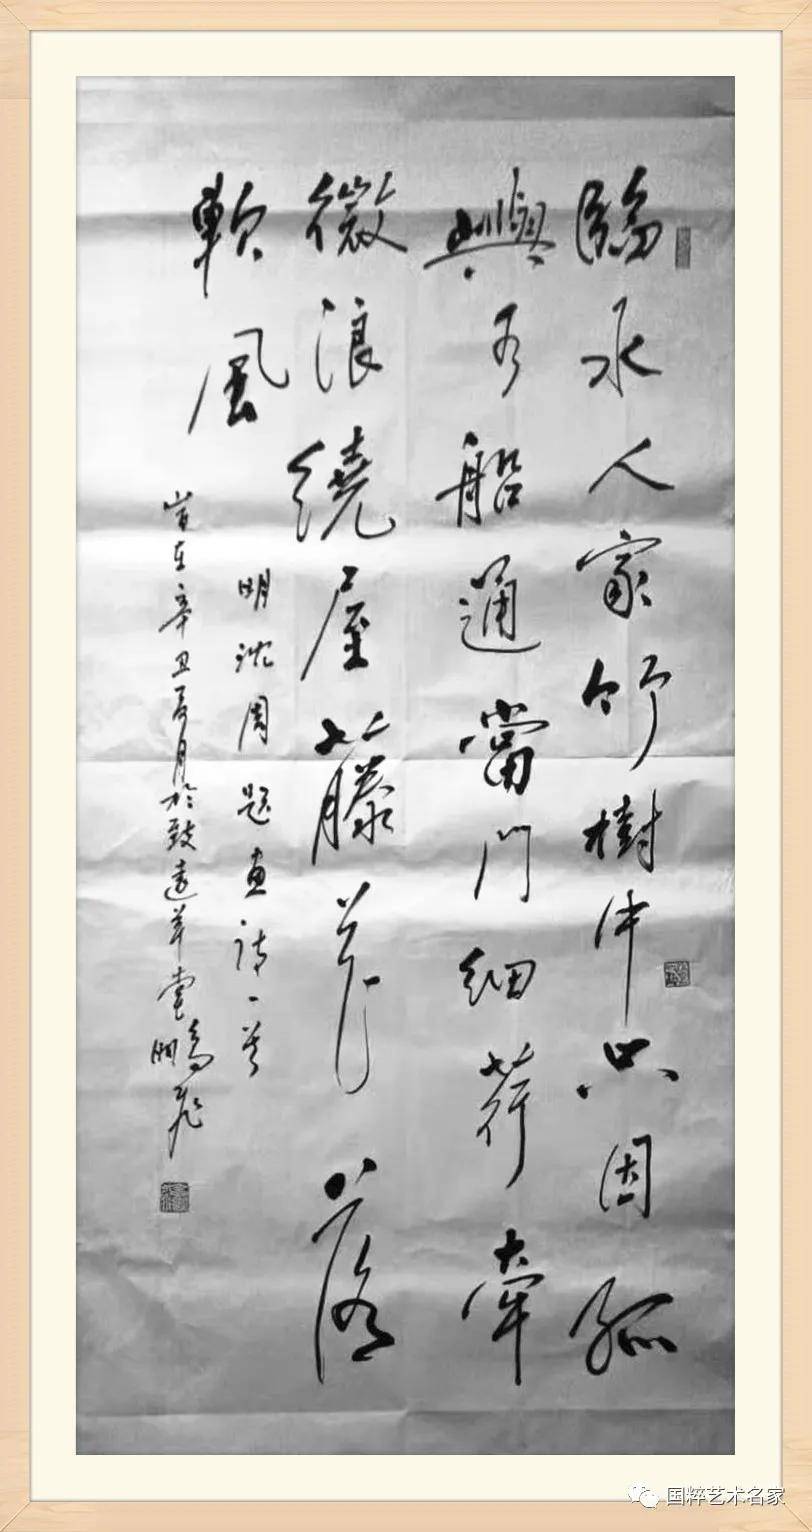 臨水人家竹樹中只因孤
嶼有船通當門細荇牽
微浪繞屋藤花落
軟風
明沈周題畫詩一首
嵗在辛丑夏月於致遠草堂
国粹艺术名家